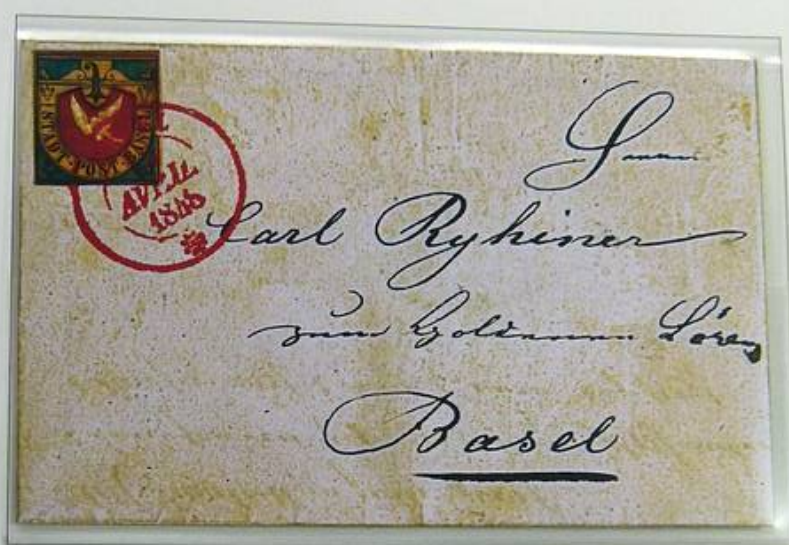 STADT-POST-BASEL
AVRIL
1848
Herrn
Carl Ryhiner
zum Goldenen Löwen
Basel